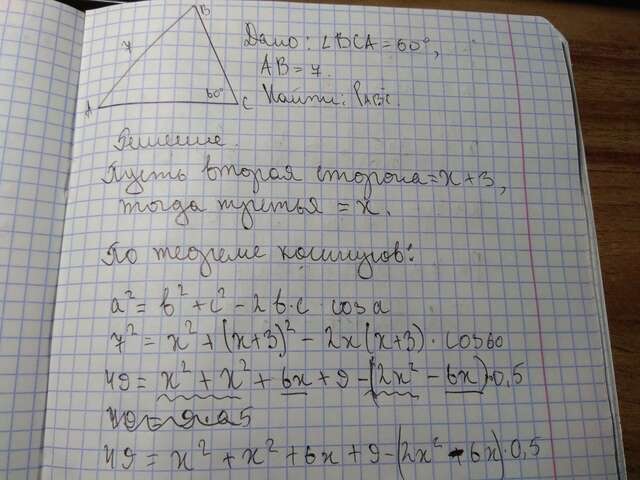 B
7
A
60°
C
Дано: ∠BCA = 60°,
AB = 7.
Найти: P ABC.
Решение.
Пусть вторая сторона = x + 3,
тогда третья = x.
По теореме косинусов:
a² = b² + c² - 2b·c cos a
7² = x² + (x+3)² - 2x(x+3) · cos60
49 = x² + x² + 6x + 9 - (2x² - 6x)·0,5
49 = x² + x² + 6x + 9 - (2x² - 6x)·0,5